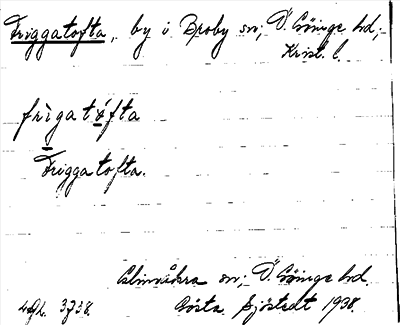 Friggatofta, by i Broby sn; Ö. Göinge hd,
Krist. l.
frìgatófta
Friggatofta.
Glimåkra sn; Ö. Göinge hd.
3738. Gösta Sjöstedt 1938.